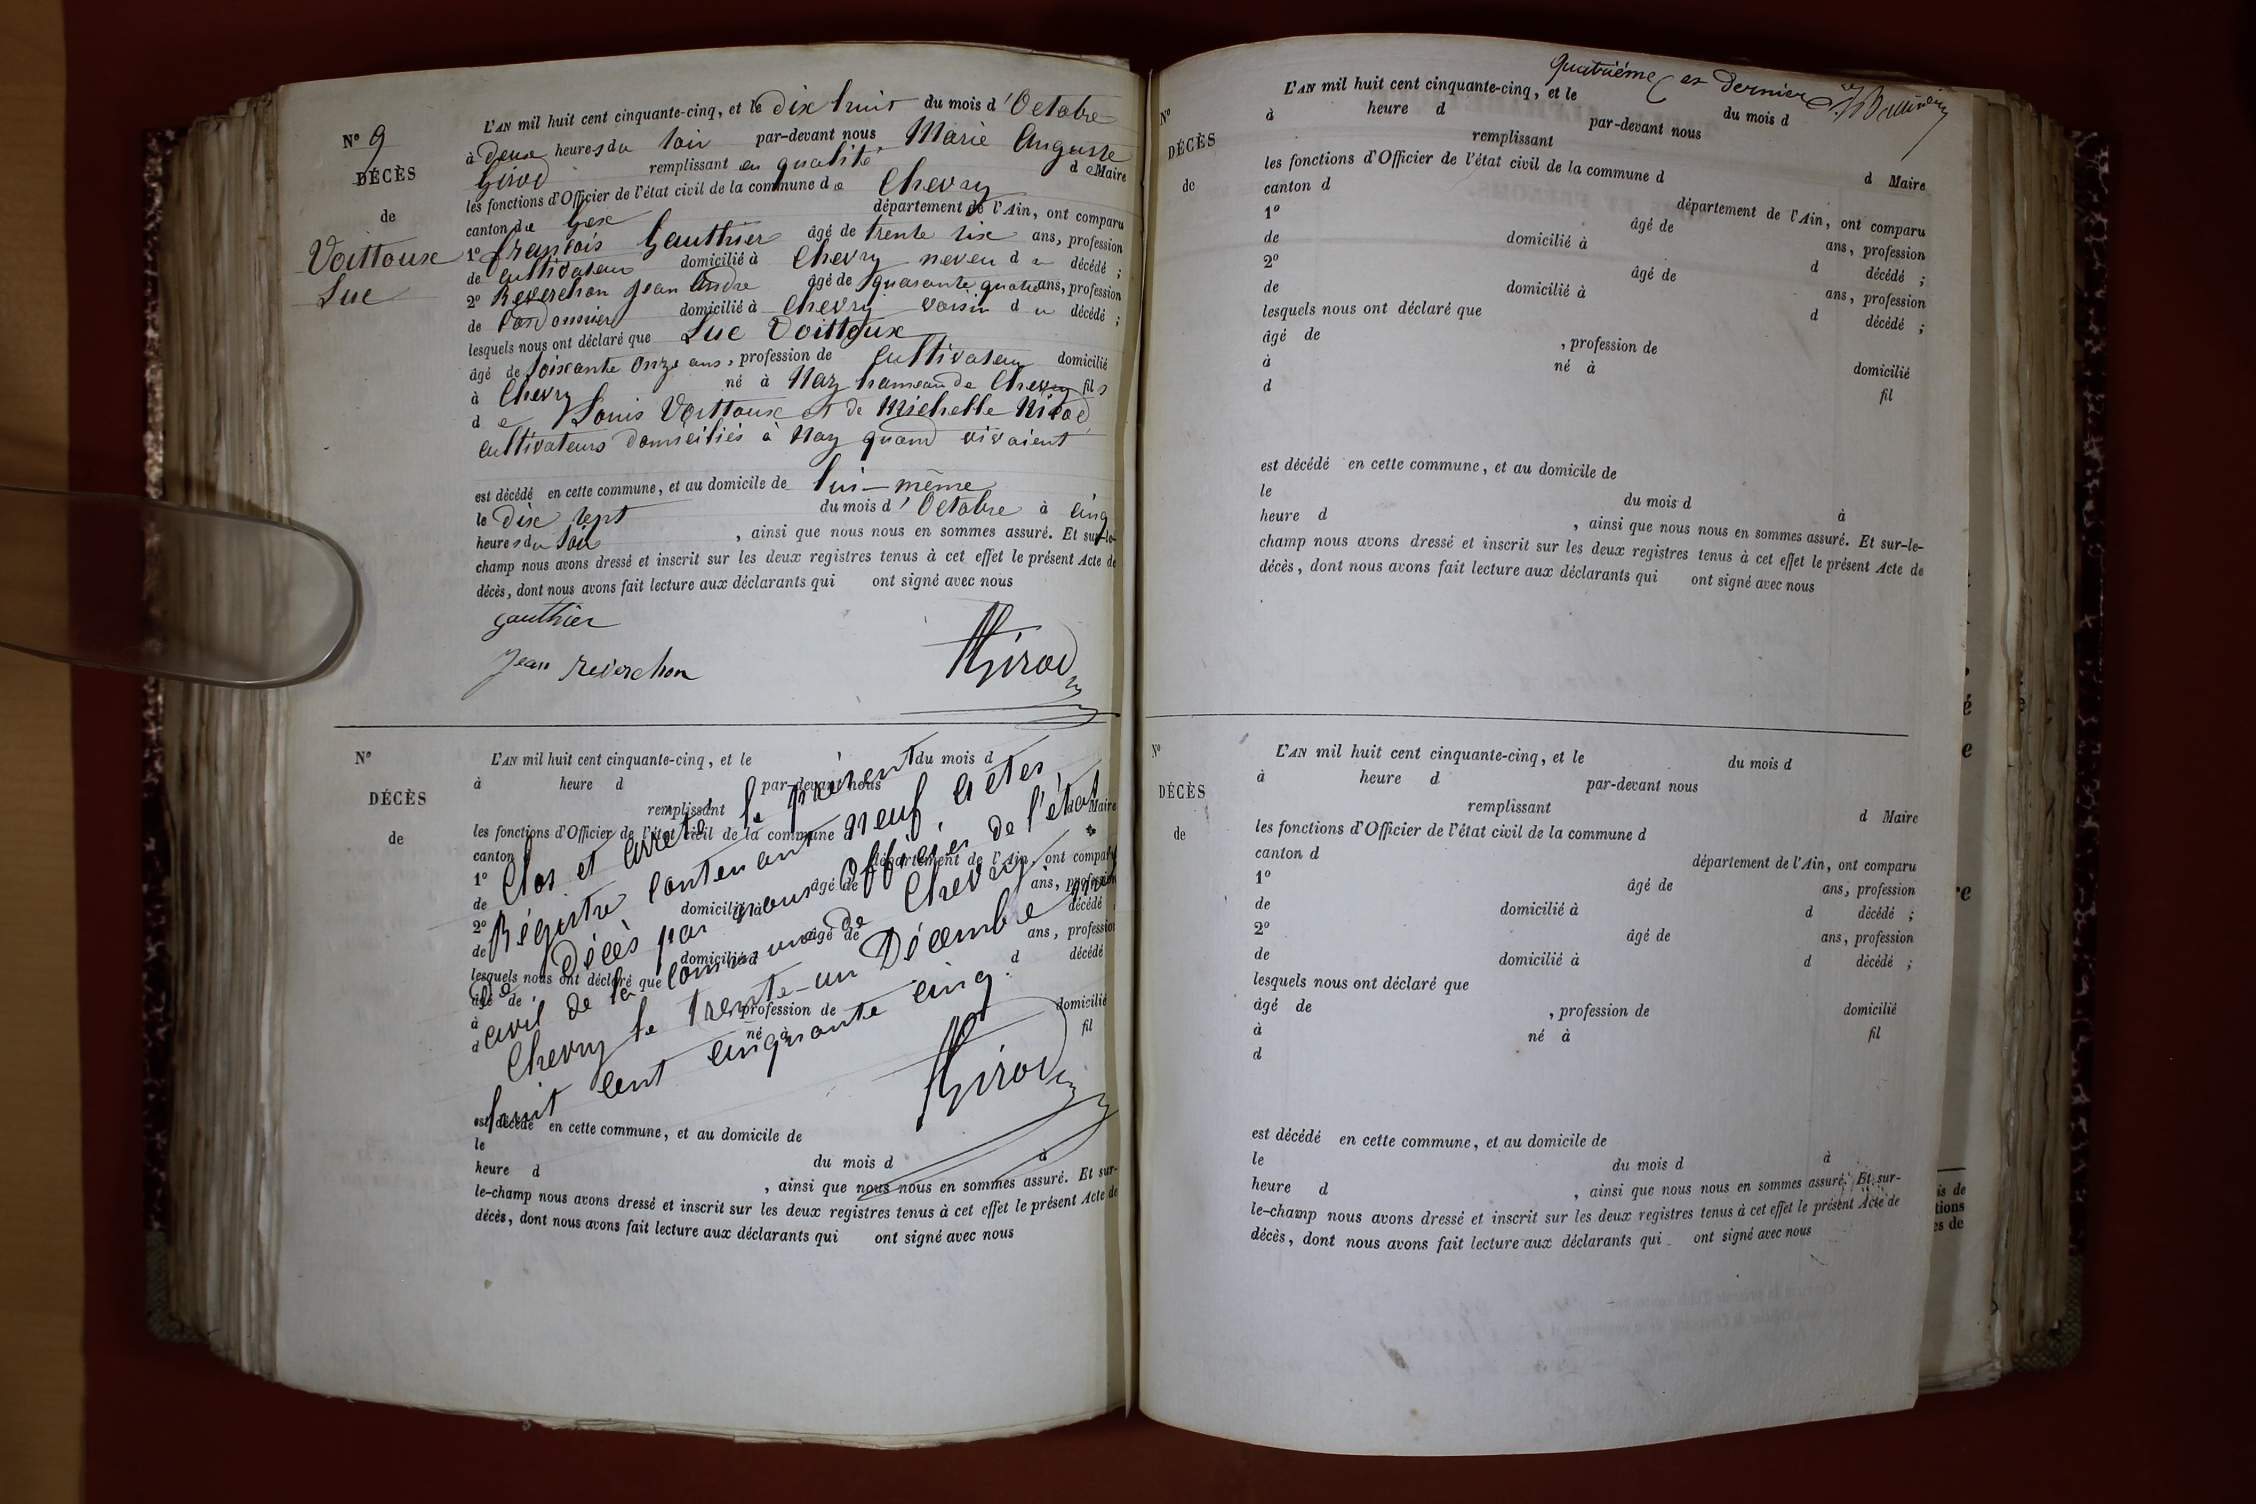 N° 9
DÉCÈS
de
Voittoux
Luc
L'AN mil huit cent cinquante-cinq, et le dix huit du mois d'Octobre
à deux heures du soir par-devant nous Marie Auguste
Girod remplissant en qualité de Maire
les fonctions d'Officier de l'état civil de la commune de Chevry
canton de Gex département de l'Ain, ont comparu
1° François Gauthier âgé de trente six ans, profession
de cultivateur domicilié à Chevry neveu du décédé ;
2° Reverchon Jean André âgé de quarante quatre ans, profession
de Cordonnier domicilié à Chevry voisin du décédé ;
lesquels nous ont déclaré que Luc Voittoux
âgé de soixante onze ans, profession de cultivateur domicilié
à Chevry né à Naz hameau de Chevry fils
de Louis Voittoux et de Michelle Nicod
cultivateurs domiciliés à Naz quand vivaient
est décédé en cette commune, et au domicile de lui-même
le dix sept du mois d'Octobre à cinq
heures du soir, ainsi que nous nous en sommes assuré. Et sur-le-
champ nous avons dressé et inscrit sur les deux registres tenus à cet effet le présent Acte de
décès, dont nous avons fait lecture aux déclarants qui ont signé avec nous
gauthier
Jean reverchon
Girod
N°
DÉCÈS
de
L'AN mil huit cent cinquante-cinq, et le du mois d
à heure d par-devant nous
remplissant d Maire
les fonctions d'Officier de l'état civil de la commune
canton département de l'Ain, ont comparu
1° âgé de ans, profession
de domicilié à décédé
2° âgé de ans, profession
de domicilié à d décédé
lesquels nous ont déclaré que
âgé de profession de domicilié
à né à fil
d
Clos et arrêté le présent
Régistre contenant neuf actes
de Décès par nous Officier de l'état
civil de la commune de Chevry
Chevry le trente-un Décembre mil
huit cent cinquante cinq.
Girod
est décédé en cette commune, et au domicile de
le du mois d à
heure d , ainsi que nous nous en sommes assuré. Et sur-
le-champ nous avons dressé et inscrit sur les deux registres tenus à cet effet le présent Acte de
décès, dont nous avons fait lecture aux déclarants qui ont signé avec nous
Quatrième et Dernier
N°
DÉCÈS
de
L'AN mil huit cent cinquante-cinq, et le du mois d
à heure d par-devant nous
remplissant d Maire
les fonctions d'Officier de l'état civil de la commune d
canton d département de l'Ain, ont comparu
1° âgé de ans, profession
de domicilié à d décédé ;
2° âgé de ans, profession
de domicilié à d décédé ;
lesquels nous ont déclaré que
âgé de , profession de domicilié
à né à fil
d
est décédé en cette commune, et au domicile de
le du mois d à
heure d , ainsi que nous nous en sommes assuré. Et sur-le-
champ nous avons dressé et inscrit sur les deux registres tenus à cet effet le présent Acte de
décès, dont nous avons fait lecture aux déclarants qui ont signé avec nous
N°
DÉCÈS
de
L'AN mil huit cent cinquante-cinq, et le du mois d
à heure d par-devant nous
remplissant d Maire
les fonctions d'Officier de l'état civil de la commune d
canton d département de l'Ain, ont comparu
1° âgé de ans, profession
de domicilié à d décédé ;
2° âgé de ans, profession
de domicilié à d décédé ;
lesquels nous ont déclaré que
âgé de , profession de domicilié
à né à fil
d
est décédé en cette commune, et au domicile de
le du mois d à
heure d , ainsi que nous nous en sommes assuré. Et sur-
le-champ nous avons dressé et inscrit sur les deux registres tenus à cet effet le présent Acte de
décès, dont nous avons fait lecture aux déclarants qui ont signé avec nous